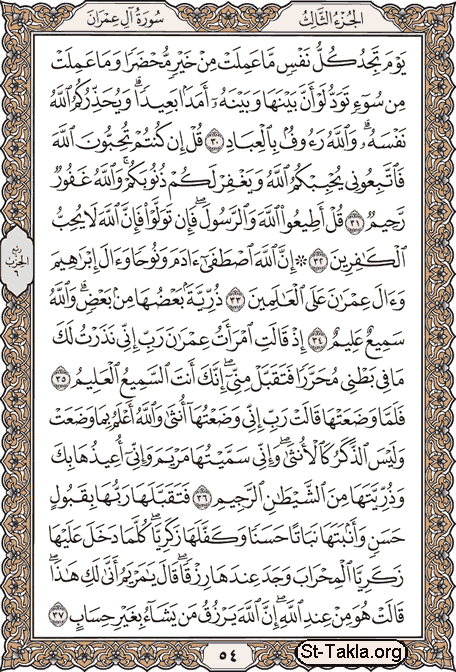 سُورَةُ آلِ عِمْرَان
الجُزْءُ الثَّالِثُ
يَوْمَ تَجِدُ كُلُّ نَفْسٍ مَّا عَمِلَتْ مِنْ خَيْرٍ مُّحْضَرًا وَمَا عَمِلَتْ
مِن سُوٓءٍ تَوَدُّ لَوْ أَنَّ بَيْنَهَا وَبَيْنَهُۥٓ أَمَدَۢا بَعِيدًاۗ وَيُحَذِّرُكُمُ ٱللَّهُ
نَفْسَهُۥۗ وَٱللَّهُ رَءُوفُۢ بِٱلْعِبَادِ ٣٠ قُلْ إِن كُنتُمْ تُحِبُّونَ ٱللَّهَ
فَٱتَّبِعُونِى يُحْبِبْكُمُ ٱللَّهُ وَيَغْفِرْ لَكُمْ ذُنُوبَكُمْۗ وَٱللَّهُ غَفُورٌ
رَّحِيمٌ ٣١ قُلْ أَطِيعُوا۟ ٱللَّهَ وَٱلرَّسُولَۖ فَإِن تَوَلَّوْا۟ فَإِنَّ ٱللَّهَ لَا يُحِبُّ
ٱلْكَٰفِرِينَ ٣٢ ۞ إِنَّ ٱللَّهَ ٱصْطَفَىٰٓ ءَادَمَ وَنُوحًا وَءَالَ إِبْرَٰهِيمَ
وَءَالَ عِمْرَٰنَ عَلَى ٱلْعَٰلَمِينَ ٣٣ ذُرِّيَّةَۢ بَعْضُهَا مِنۢ بَعْضٍۗ وَٱللَّهُ
سَمِيعٌ عَلِيمٌ ٣٤ إِذْ قَالَتِ ٱمْرَأَتُ عِمْرَٰنَ رَبِّ إِنِّى نَذَرْتُ لَكَ
مَا فِى بَطْنِى مُحَرَّرًا فَتَقَبَّلْ مِنِّىٓۖ إِنَّكَ أَنتَ ٱلسَّمِيعُ ٱلْعَلِيمُ ٣٥
فَلَمَّا وَضَعَتْهَا قَالَتْ رَبِّ إِنِّى وَضَعْتُهَآ أُنثَىٰ وَٱللَّهُ أَعْلَمُ بِمَا وَضَعَتْ
وَلَيْسَ ٱلذَّكَرُ كَٱلْأُنثَىٰۖ وَإِنِّى سَمَّيْتُهَا مَرْيَمَ وَإِنِّىٓ أُعِيذُهَا بِكَ
وَذُرِّيَّتَهَا مِنَ ٱلشَّيْطَٰنِ ٱلرَّجِيمِ ٣٦ فَتَقَبَّلَهَا رَبُّهَا بِقَبُولٍ
حَسَنٍ وَأَنۢبَتَهَا نَبَاتًا حَسَنًا وَكَفَّلَهَا زَكَرِيَّاۖ كُلَّمَا دَخَلَ عَلَيْهَا
زَكَرِيَّا ٱلْمِحْرَابَ وَجَدَ عِندَهَا رِزْقًاۖ قَالَ يَٰمَرْيَمُ أَنَّىٰ لَكِ هَٰذَاۖ
قَالَتْ هُوَ مِنْ عِندِ ٱللَّهِۖ إِنَّ ٱللَّهَ يَرْزُقُ مَن يَشَآءُ بِغَيْرِ حِسَابٍ ٣٧
ربع
الحزب
٦
٥٤
St-Takla.org